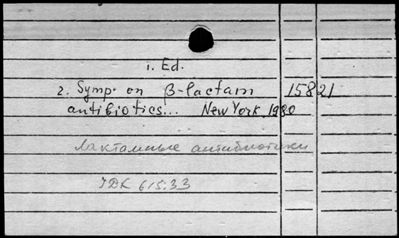 i. Ed.
2. Symp. on β-lactam 15821
antibiotics... New York, 1980
Лактамные антибиотики
УДК 615.33